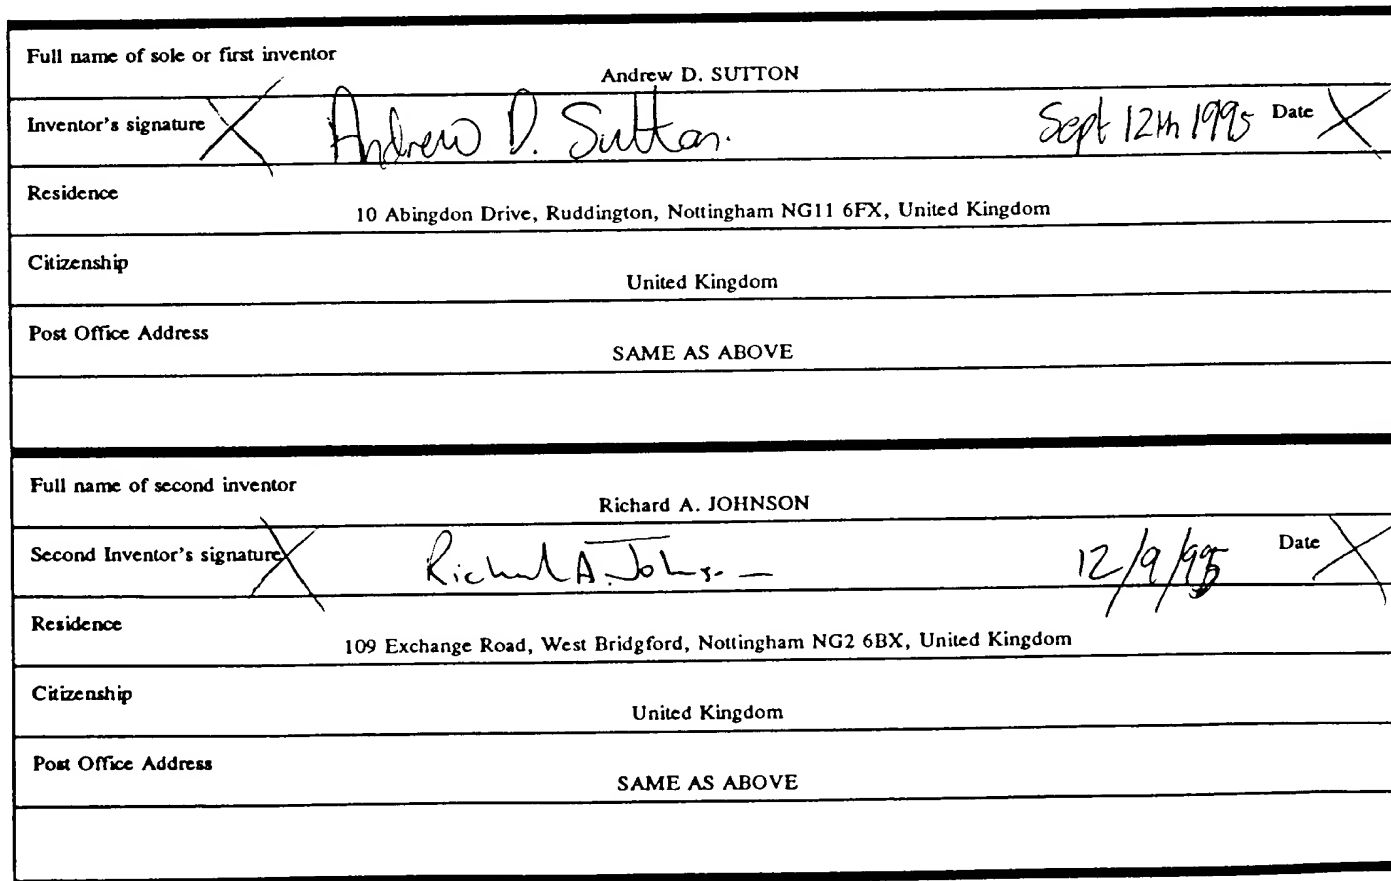 Full name of sole or first inventor
Andrew D. SUTTON
Inventor's signature X Andrew D. Sutton. Sept 12th 1995 Date X
Residence
10 Abingdon Drive, Ruddington, Nottingham NG11 6FX, United Kingdom
Citizenship
United Kingdom
Post Office Address
SAME AS ABOVE
Full name of second inventor
Richard A. JOHNSON
Second Inventor's signature X Richard A. Johnson 12/9/95 Date X
Residence
109 Exchange Road, West Bridgford, Nottingham NG2 6BX, United Kingdom
Citizenship
United Kingdom
Post Office Address
SAME AS ABOVE